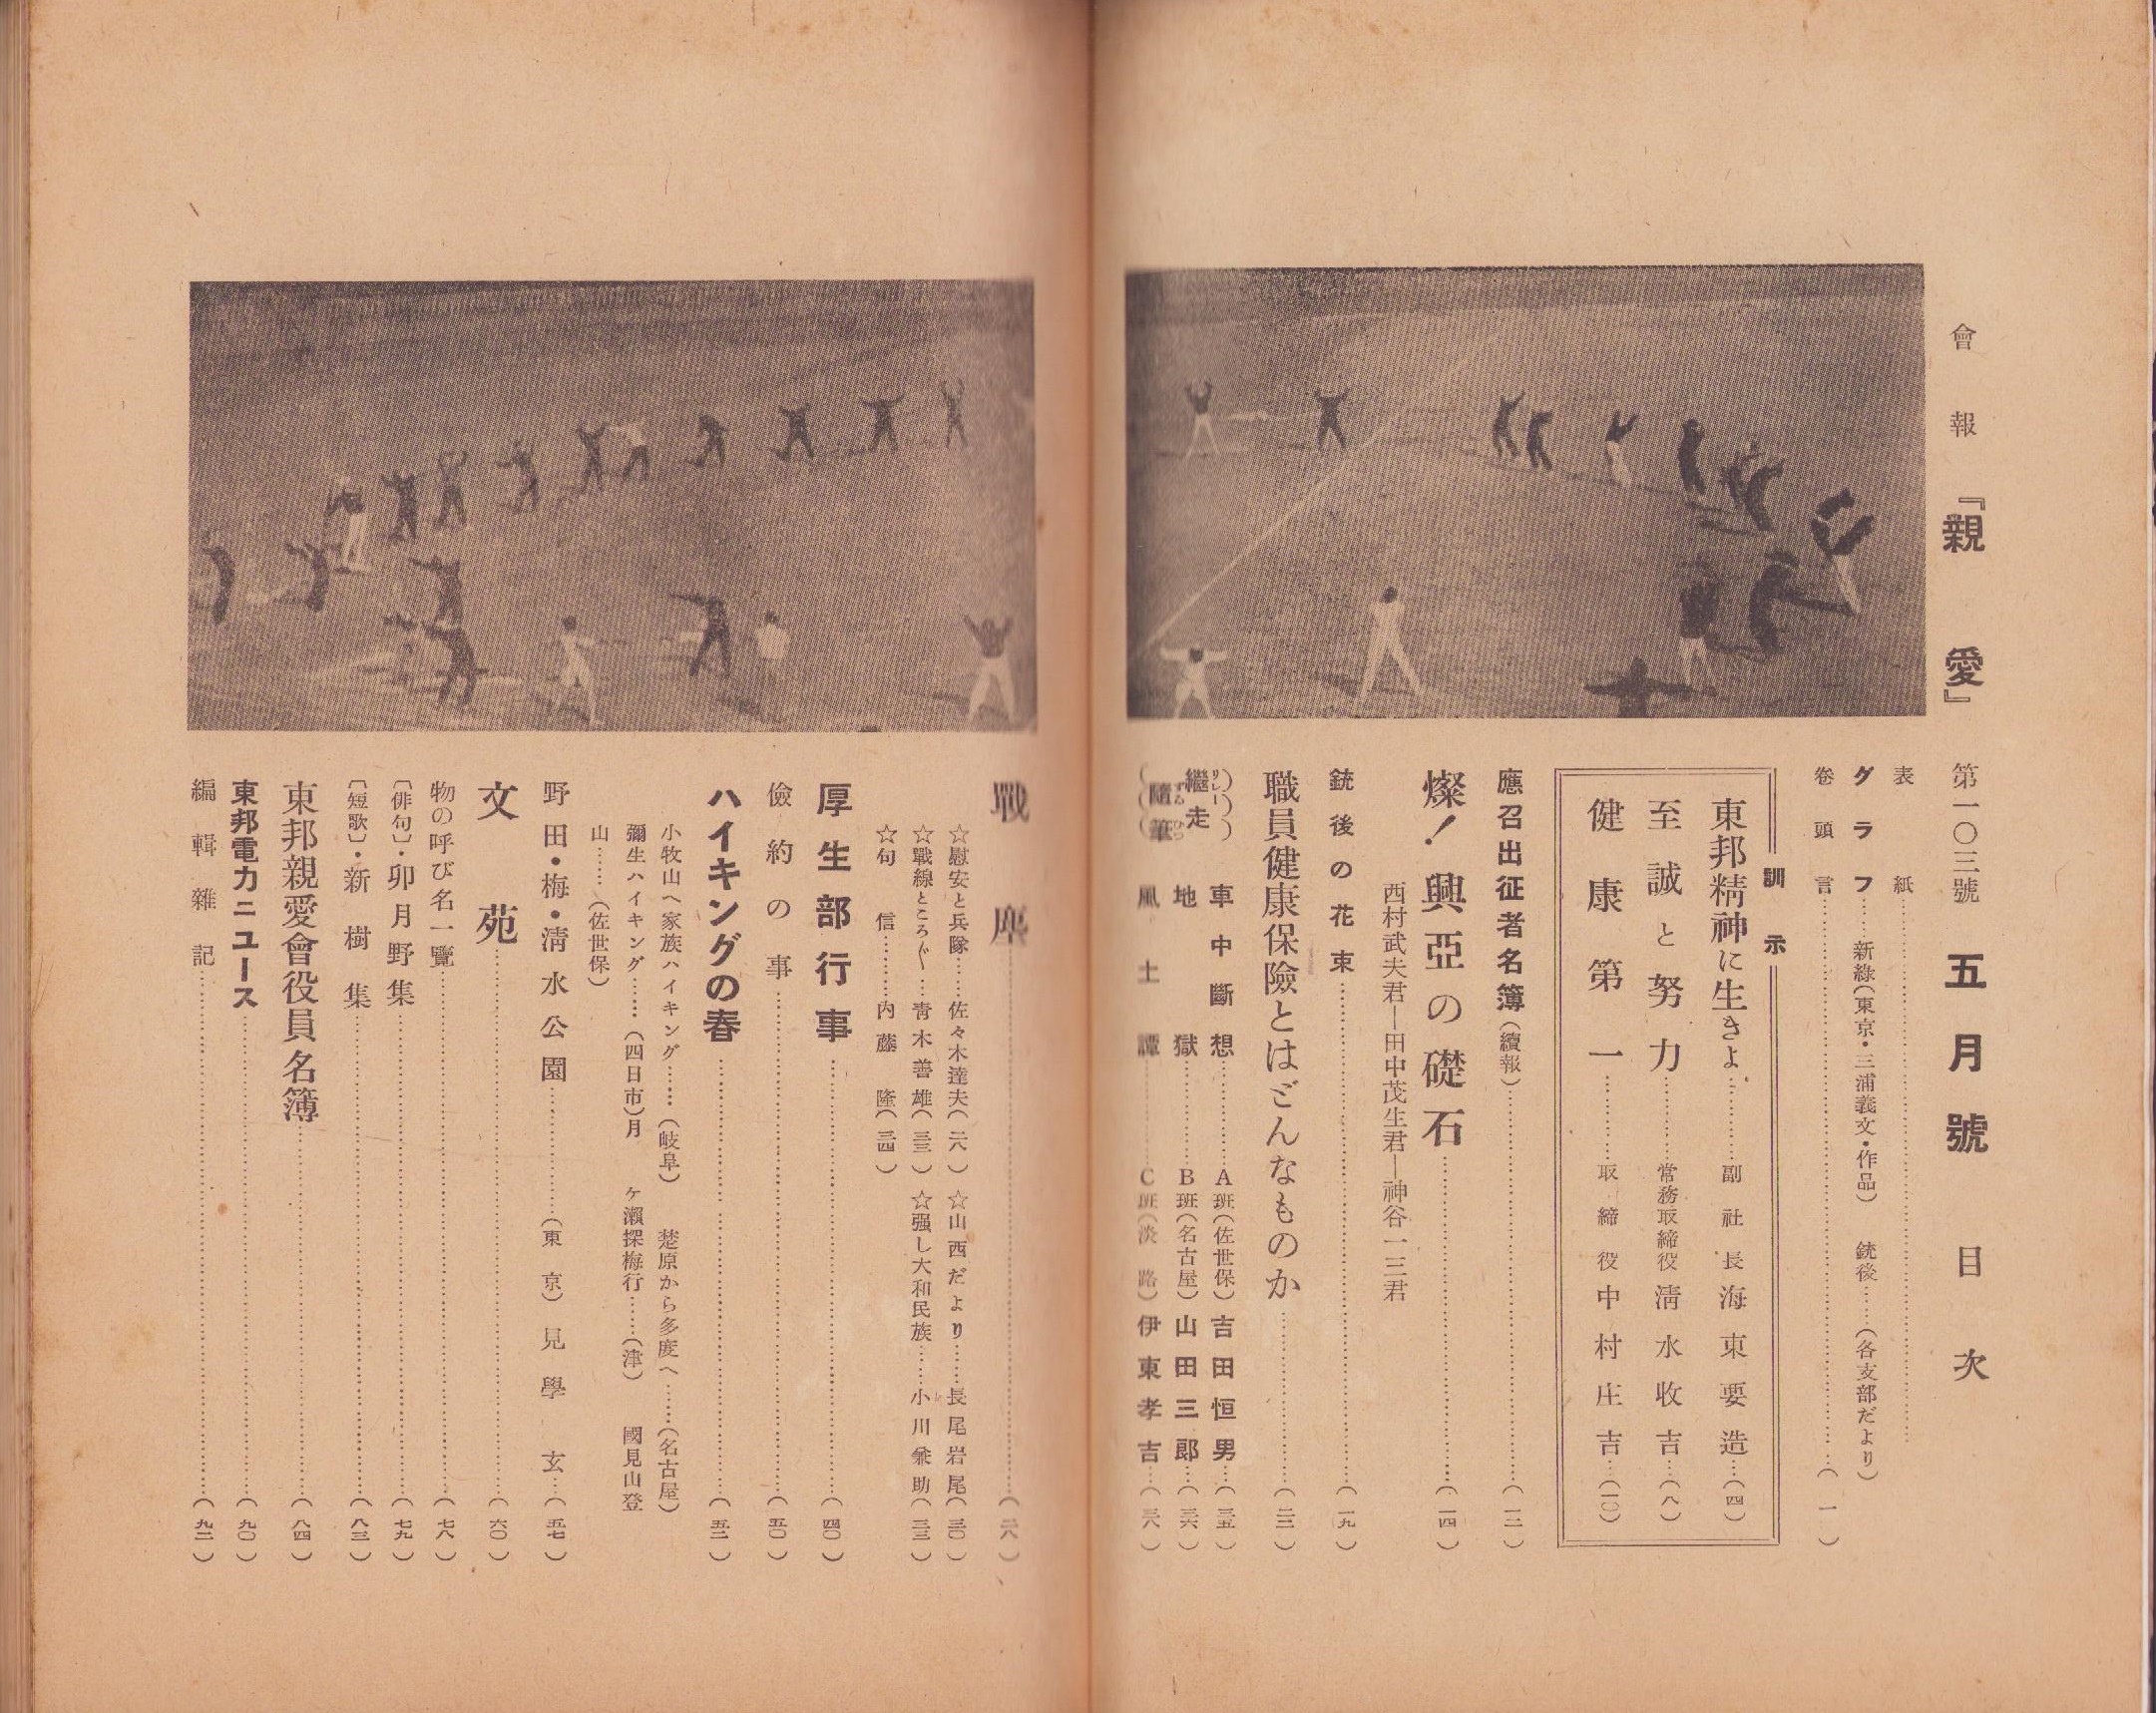 會報『親愛』第一〇三號 五月號 目次
表紙
グラフ……新綠(東京・三浦義文・作品) 銃後……(各支部だより)
卷頭言……(一)
訓示
東邦精神に生きよ……副社長 海東要造…(四)
至誠と努力……常務取締役 淸水收吉…(八)
健康第一……取締役 中村庄吉…(一〇)
應召出征者名簿(續報)……(一二)
燦!興亞の礎石……(一四)
西村武夫君―田中茂生君―神谷一三君
銃後の花束……(一九)
職員健康保險とはどんなものか……(二三)
繼走(リレー)隨筆(ずゐひつ)
車中斷想……A班(佐世保)吉田恒男…(三五)
地獄……B班(名古屋)山田三郎…(三六)
風土譚……C班(淡路)伊東孝吉…(三八)
戰塵……(二八)
☆慰安と兵隊……佐々木達夫(二八) ☆山西だより……長尾岩尾(三〇)
☆戰線ところ〴〵…靑木善雄(三三) ☆强し大和民族……小川兼助(三三)
☆句信……内藤隆(三四)
厚生部行事……(四〇)
儉約の事……(五〇)
ハイキングの春……(五二)
小牧山へ家族ハイキング……(岐阜) 楚原から多度へ……(名古屋)
彌生ハイキング……(四日市)月ヶ瀨探梅行……(津) 國見山登
山……(佐世保)
野田・梅・淸水公園……(東京)見學玄…(五七)
文苑……(六〇)
物の呼び名一覽……(七八)
〔俳句〕・卯月野集……(七九)
〔短歌〕・新樹集……(八三)
東邦親愛會役員名簿……(八四)
東邦電力ニュース……(九〇)
編輯雜記……(九二)